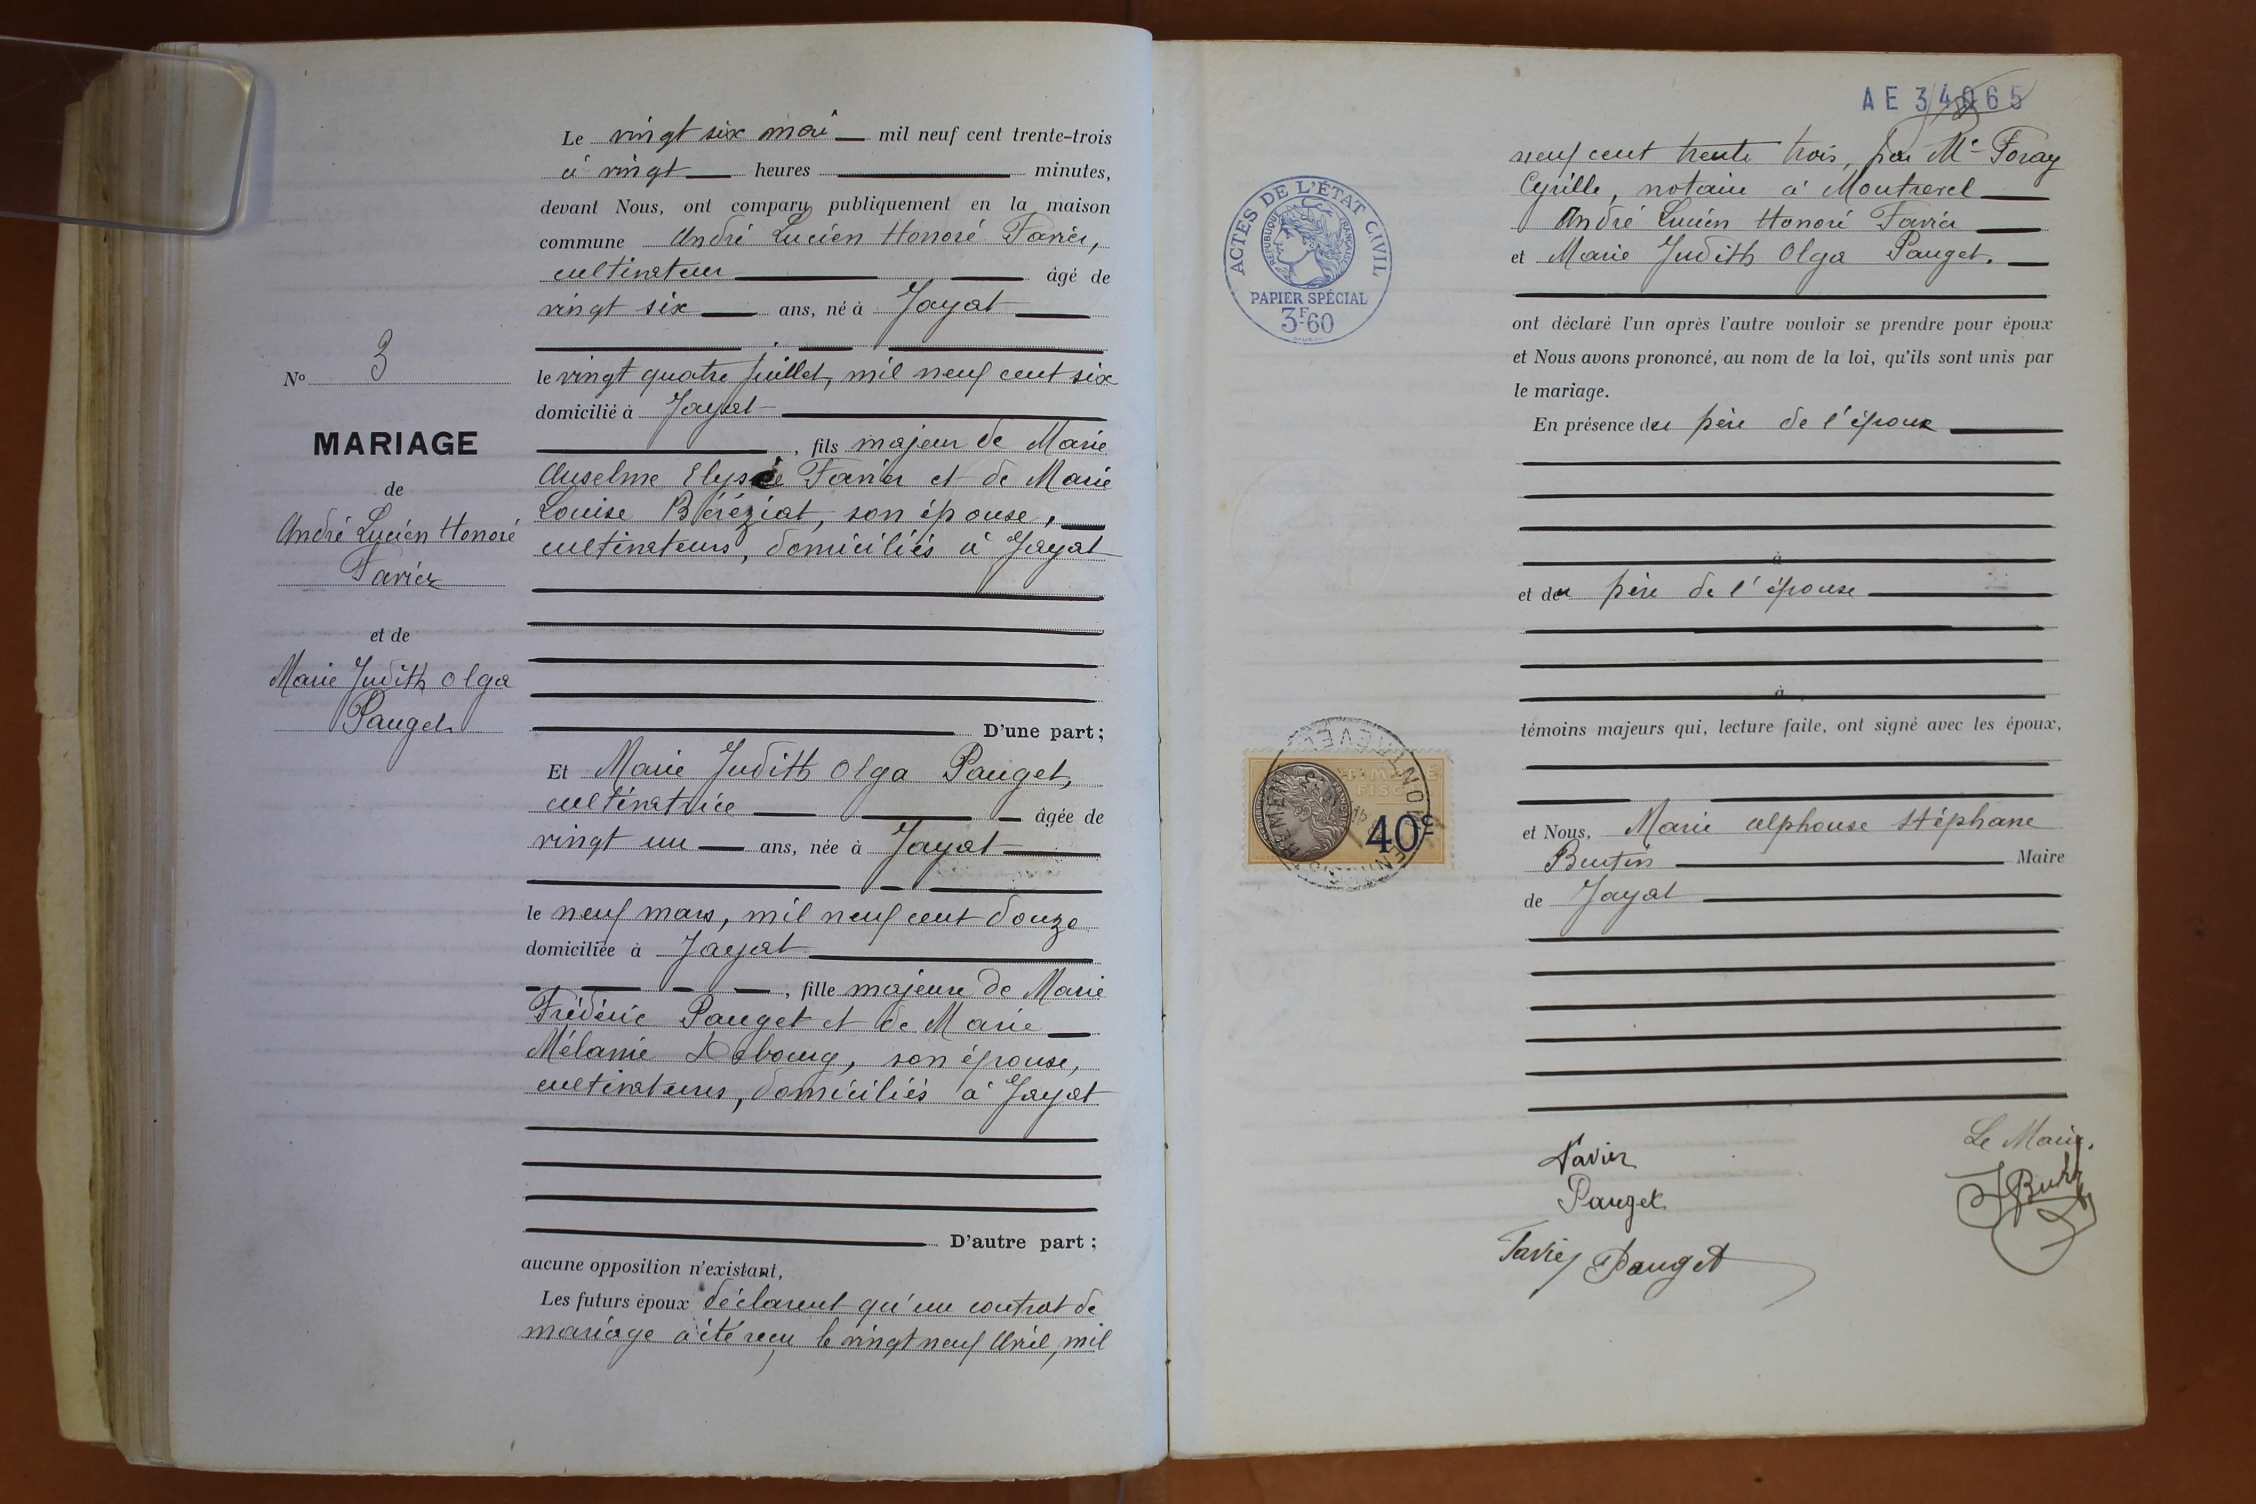 Le vingt six mai mil neuf cent trente-trois
à vingt heures minutes,
devant Nous, ont comparu publiquement en la maison
commune André Lucien Honoré Favier,
cultivateur âgé de
vingt six ans, né à Jayat
le vingt quatre juillet, mil neuf cent six
domicilié à Jayat
, fils majeur de Marie
Anselme Elysée Favier et de Marie
Louise Béréziat, son épouse,
cultivateurs, domiciliés à Jayat
D'une part;
Et Marie Judith Olga Pauget,
cultivatrice âgée de
vingt un ans, née à Jayat
le neuf mars, mil neuf cent douze
domiciliée à Jayat
, fille majeure de Marie
Frédéric Pauget et de Marie
Mélanie Debourg, son épouse,
cultivateurs, domiciliés à Jayat
D'autre part;
aucune opposition n'existant,
Les futurs époux déclarent qu'un contrat de
mariage a été reçu le vingt neuf Avril, mil
No 3
MARIAGE
de
André Lucien Honoré
Favier
et de
Marie Judith Olga
Pauget
AE 34065
neuf cent trente trois, par Me Foray
Cyrille, notaire à Montrevel
André Lucien Honoré Favier
et Marie Judith Olga Pauget.
ont déclaré l'un après l'autre vouloir se prendre pour époux
et Nous avons prononcé, au nom de la loi, qu'ils sont unis par
le mariage.
En présence du père de l'époux
à
et du père de l'épouse
à
témoins majeurs qui, lecture faite, ont signé avec les époux,
et Nous, Marie Alphonse Stéphane
Butin Maire
de Jayat
Le Maire,
Favier
Pauget
Favier Pauget
ACTES DE L'ÉTAT CIVIL
RÉPUBLIQUE FRANÇAISE
PAPIER SPÉCIAL
3F60
40